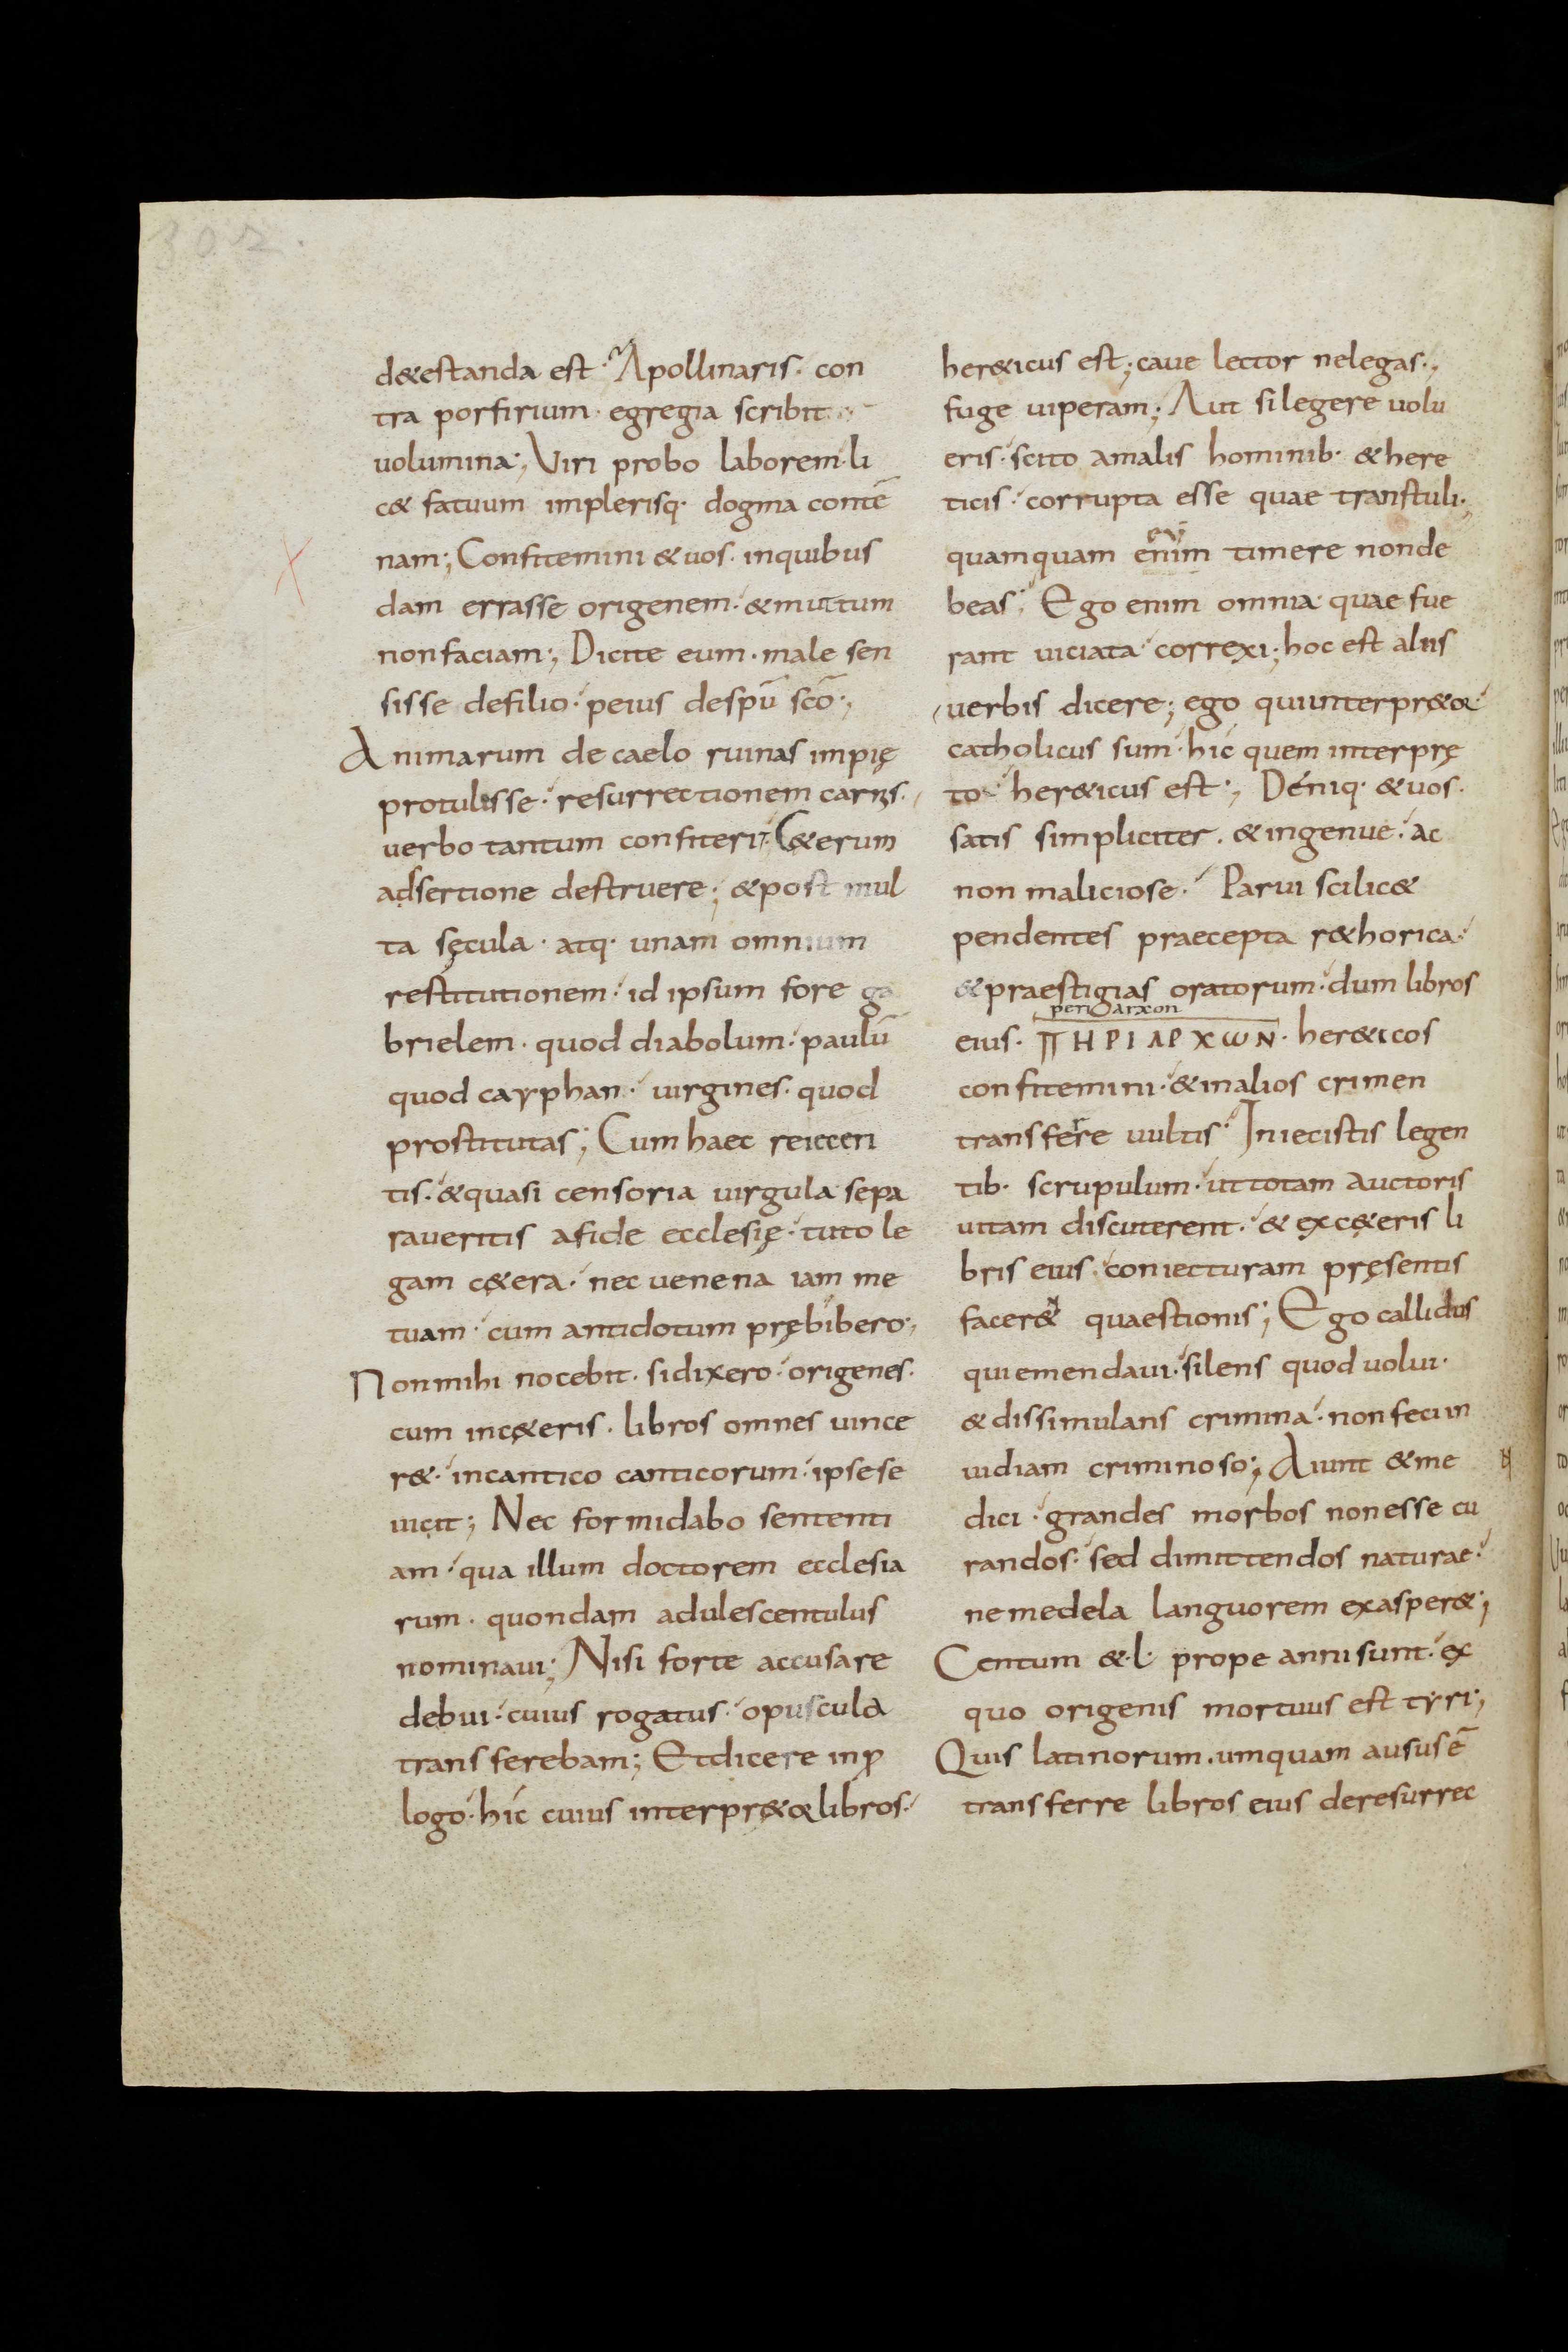 302.
d&estanda est· Apollinaris· con
tra porfirium· egregia scribit
uolumina·, Viri probo laborem· li
c& fatuum implerisq· dogma contē
nam; Confitemini & uos· inquibus
dam errasse origenem· & muttum
non faciam·, Dicite eum· male sen
sisse defilio· peius despū scō·,
Animarum de caelo ruinas impię
protulisse· resurrectionem carnis·
uerbo tantum confiteri· C&erum
adsertione destruere; & post mul
ta sęcula· atq· unam omnium
restitutionem· id ipsum fore ga
brielem· quod diabolum· paulū
quod cayphan· uirgines· quod
prostitutas; Cum haec reieceri
tis· & quasi censoria uirgula sepa
raueritis afide ecclesię· tuto le
gam cę&era· nec uenena iam me
tuam· cum antidotum prębibero·,
Non mihi nocebit· si dixero· origenes·
cum incę&eris· libros omnes uince
r&· incantico canticorum· ipse se
uicit; Nec formidabo sententi
am· qua illum doctorem ecclesia
rum· quondam adulescentulus
nominaui; Nisi forte accusare
debui· cuius rogatus· opuscula
transferebam; Et dicere inp
logo· hic cuius interpr&or libros·
her&icus est; caue lector nelegas·,
fuge uiperam; Aut silegere uolu
eris· scito amalis hominib· & here
ticis· corrupta esse quae transtuli·,
quamquam enim timere nonde
beas; Ego enim omnia quae fue
rant uiciata correxi; hoc est aliis
uerbis dicere; ego qui interpr&or
catholicus sum· hic quem interprę
to her&icus est·, Déniq· & uos·
satis simpliciter· & ingenue· ac
non maliciose· Parui scilic&
pendentes praecepta r&horica·
& praestigias oratorum· dum libros
peri arxon
eius· ΠΗΡΙΑΡΧωΝ· her&icos
confitemini· & inalios crimen
transferre uultis· Iniecistis legen
tib· scrupulum· ut totam auctoris
uitam discuterent· & excę&eris li
bris eius· coniecturam pręsentis
facer& quaestionis; Ego callidus
qui emendaui· silens quod uolui·
& dissimulans crimina· non feci in
uidiam criminoso·, Aiunt & me
dici· grandes morbos nonesse cu
randos· sed dimittendos naturae·
nemedela languorem exasper&;
Centum &·l· prope anni sunt· ex
quo origenis mortuus est tyri·,
Quis latinorum· umquam ausus ē
transferre libros eius deresurrec